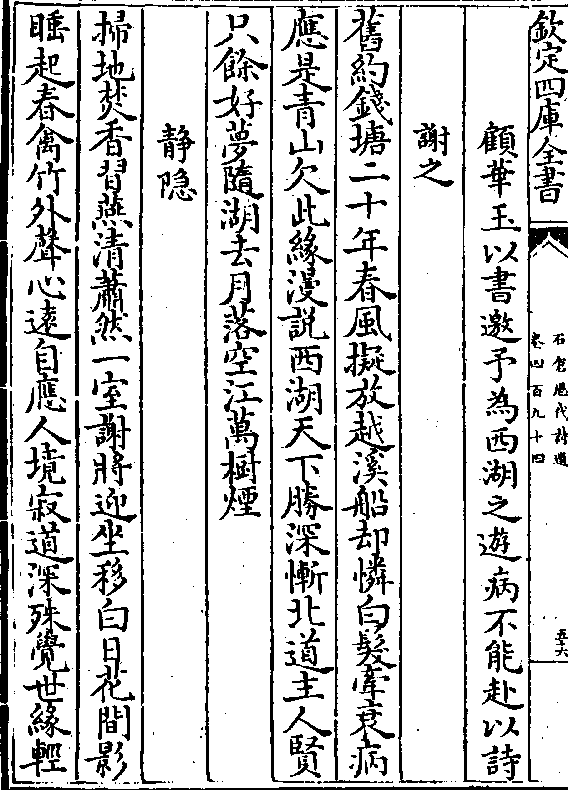 欽定四庫全書
石倉歷代詩選
卷四百九十四
五六
顧華玉以書邀予為西湖之遊病不能赴以詩
謝之
舊約錢塘二十年春風擬放越溪船却憐白髮牽衰病
應是青山欠此緣漫説西湖天下勝深慚北道主人賢
只餘好夢隨湖去月落空江萬樹煙
静隐
掃地焚香習燕清蕭然一室謝將迎坐移白日花間影
睡起春禽竹外聲心遠自應人境寂道深殊覺世緣輕